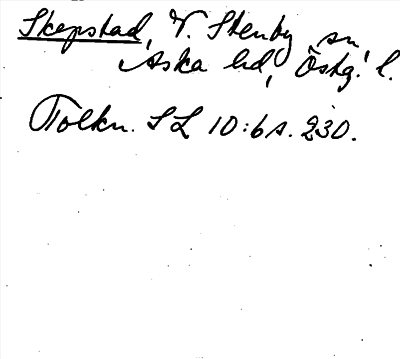 Skepstad, V. Stenby sn,
Aska hd, Östg. l.
Tolkn. SL 10:6 s. 230.